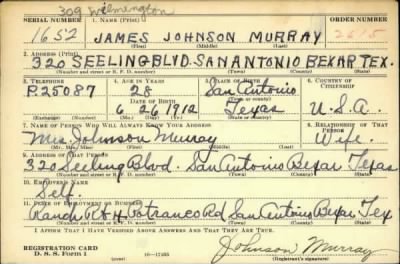 309 Wilmington
SERIAL NUMBER 1. NAME (Print) ORDER NUMBER
1652 JAMES JOHNSON MURRAY 2615
(First) (Middle) (Last)
2. ADDRESS (Print)
320 SEELING BLVD. SAN ANTONIO BEXAR TEX.
(Number and street or R. F. D. number) (Town) (County) (State)
3. TELEPHONE 4. AGE IN YEARS 5. PLACE OF BIRTH 6. COUNTRY OF CITIZENSHIP
P.25087 28 San Antonio
DATE OF BIRTH (Town or county)
6 26 1912 Texas U.S.A.
(Exchange) (Number) (Mo.) (Day) (Yr.) (State or country)
7. NAME OF PERSON WHO WILL ALWAYS KNOW YOUR ADDRESS 8. RELATIONSHIP OF THAT PERSON
Mrs. Johnson Murray Wife
(Mr., Mrs., Miss) (First) (Middle) (Last)
9. ADDRESS OF THAT PERSON
320 Seeling Blvd. San Antonio Bexar Texas
(Number and street or R. F. D. number) (Town) (County) (State)
10. EMPLOYER'S NAME
Self.
11. PLACE OF EMPLOYMENT OR BUSINESS
Ranch Rt 4 Potranco Rd San Antonio Bexar Tex
(Number and street or R. F. D. number) (Town) (County) (State)
I AFFIRM THAT I HAVE VERIFIED ABOVE ANSWERS AND THAT THEY ARE TRUE.
REGISTRATION CARD
D. S. S. Form 1 16-17105 Johnson Murray